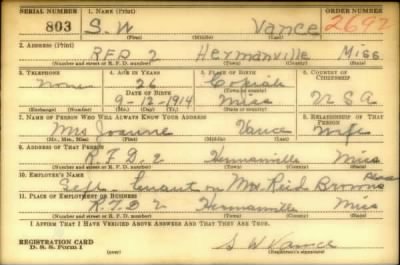 SERIAL NUMBER 1. NAME (Print) ORDER NUMBER
803 S. W Vance 2692
(First) (Middle) (Last)
2. ADDRESS (Print)
RFD 2 Hermanville Miss
(Number and street or R. F. D. number) (Town) (County) (State)
3. TELEPHONE 4. AGE IN YEARS 5. PLACE OF BIRTH 6. COUNTRY OF CITIZENSHIP
None 26 Copiah
DATE OF BIRTH (Town or county)
9-12-1914 Miss USA
(Exchange) (Number) (Mo.) (Day) (Yr.) (State or country)
7. NAME OF PERSON WHO WILL ALWAYS KNOW YOUR ADDRESS 8. RELATIONSHIP OF THAT PERSON
Mrs Joanne Vance Wife
(Mr., Mrs., Miss) (First) (Middle) (Last)
9. ADDRESS OF THAT PERSON
R.F.D. 2 Hermanville Miss
(Number and street or R. F. D. number) (Town) (County) (State)
10. EMPLOYER'S NAME
Self Tenant on Mrs Reid Browns Place
11. PLACE OF EMPLOYMENT OR BUSINESS
R.F.D 2 Hermanville Miss
(Number and street or R. F. D. number) (Town) (County) (State)
I AFFIRM THAT I HAVE VERIFIED ABOVE ANSWERS AND THAT THEY ARE TRUE.
REGISTRATION CARD
D. S. S. Form 1 S W Vance
(Registrant's signature)